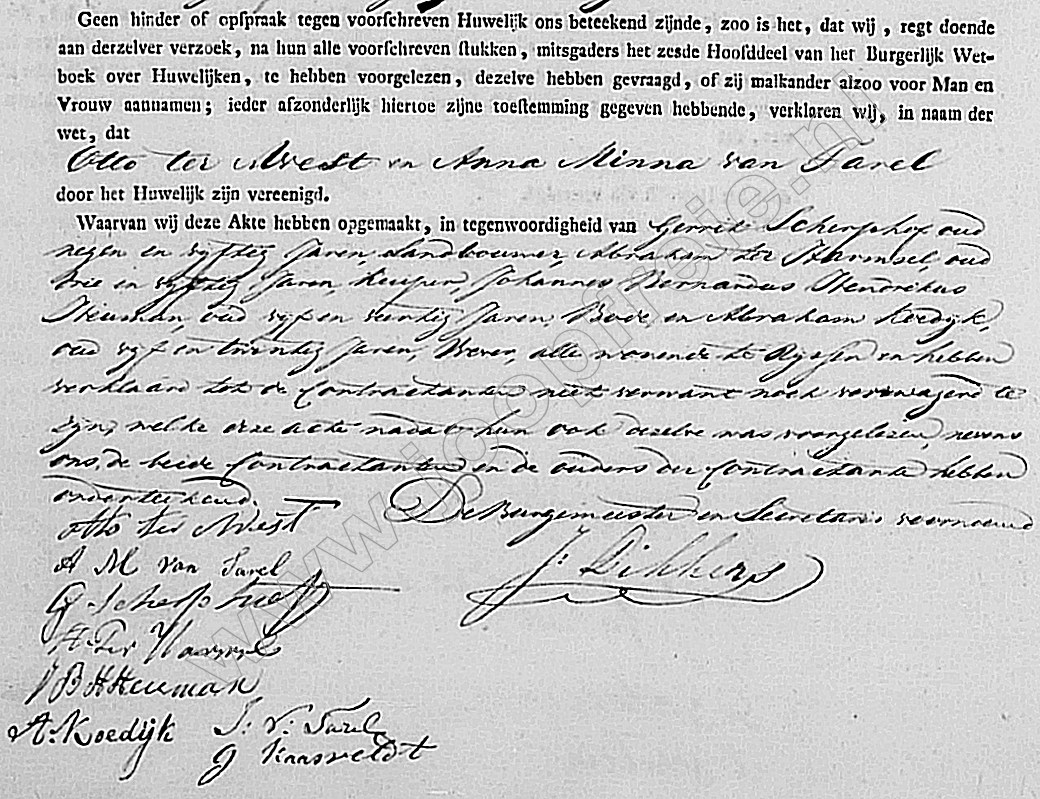 Geen hinder of opspraak tegen voorschreven Huwelijk ons beteekend zijnde, zoo is het, dat wij, regt doende
aan derzelver verzoek, na hun alle voorschreven stukken, mitsgaders het zesde Hoofddeel van het Burgerlijk Wet-
boek over Huwelijken, te hebben voorgelezen, dezelve hebben gevraagd, of zij malkander alzoo voor Man en
Vrouw aannamen; ieder afzonderlijk hiertoe zijne toestemming gegeven hebbende, verklaren wij, in naam der
wet, dat
Otto ter Avest en Anna Minna van Tarel
door het Huwelijk zijn vereenigd.
Waarvan wij deze Akte hebben opgemaakt, in tegenwoordigheid van Gerrit Scherphof oud
negen en vyftig Jaren, Landbouwer, Abraham ter Harmsel, oud
drie en vyftig Jaren, Kuiper, Johannes Bernardus Hendrikus
Heuman, oud vyf en veertig Jaren, Bode, en Abraham Koedijk,
oud vyf en twintig Jaren, Wever, alle wonende te Ryssen en hebben
verklaard tot de Contractanten niet verwant noch vermaagd te
zyn, welke deze acte nadat hun ook dezelve was voorgelezen, nevens
ons, de beide Contractanten en de ouders der Contractante hebben
onderteekend.
De Burgemeester en Secretaris voornoemd
Otto ter Avest
J. Dikkers
A M van Tarel
G. Scherphof
A. Ter Harmsel
J B H Heuman
A. Koedijk
J. V. Tarel
g Kaasveldt
www.joopfreie.nl